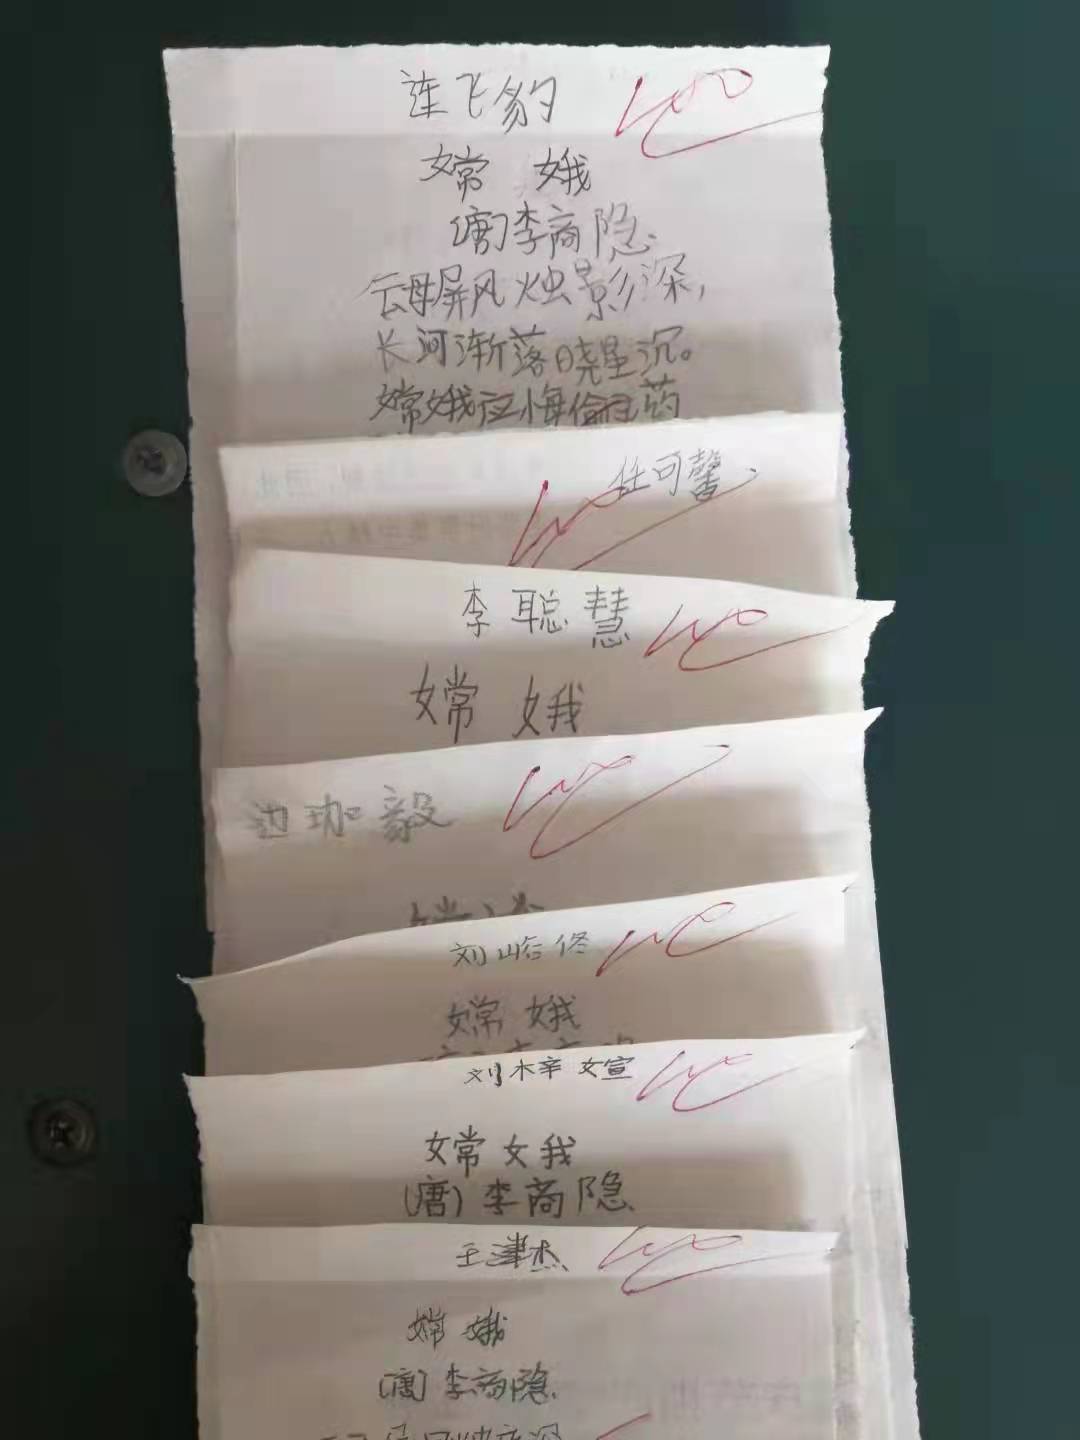 连飞豹 100
嫦 娥
(唐)李商隐
云母屏风烛影深,
长河渐落晓星沉。
嫦娥应悔偷灵药
任可馨 100
李聪慧 100
嫦 娥
边珈毅 100
刘峪佟 100
嫦 娥
刘梓嫙 100
嫦 娥
(唐) 李商隐
王津杰 100
嫦 娥
(唐) 李商隐